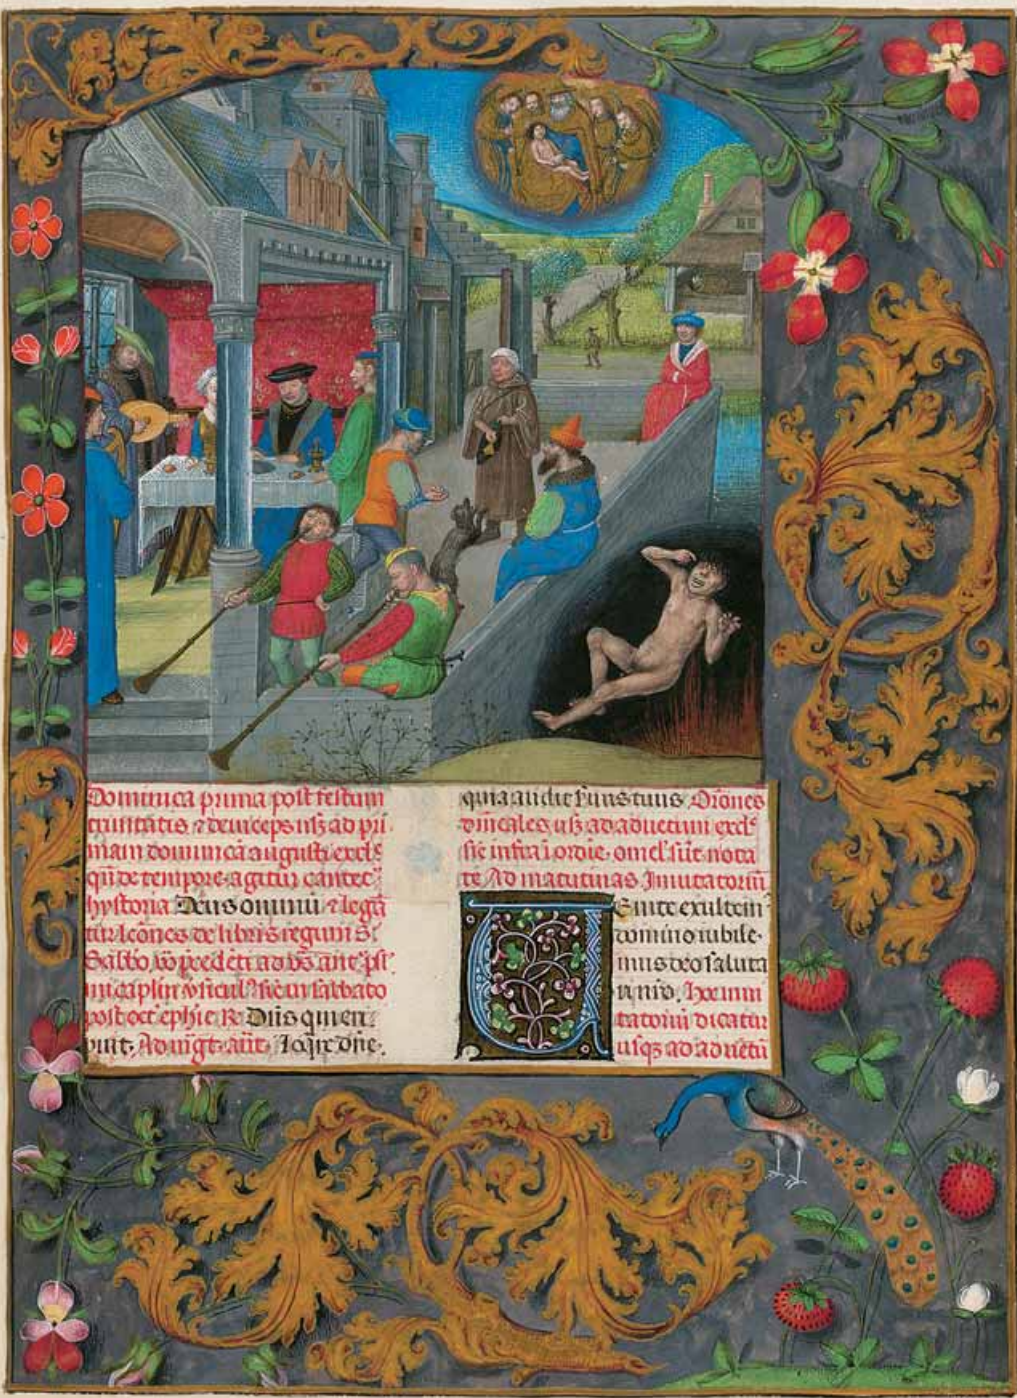 Dominica prima post festum
trinitatis ⁊ deinceps usq; ad pri
mam dominicā augusti excls
qñ de tempore agitur cantet᷑
hystoria Deus omniū ⁊ legū
tur lcōnes de libris regum
Sabbō
in caplm ỽsicul⁹ sicut in sabbato
post oct epħie R Dñs qui eri
puit. Ad mgt. añt. dñe.
quia audit seruus tuus. Orōnes
dñicales usq; ad aduentum excls
sic infra ī ordīe. om̄el sūt nota
te Ad matutinas Inuitatoriū
Enite exultem
domino iubile
mus deo saluta
ri nr̄o. Hoc inui
tatoriū dicatur
usq; ad aduētū